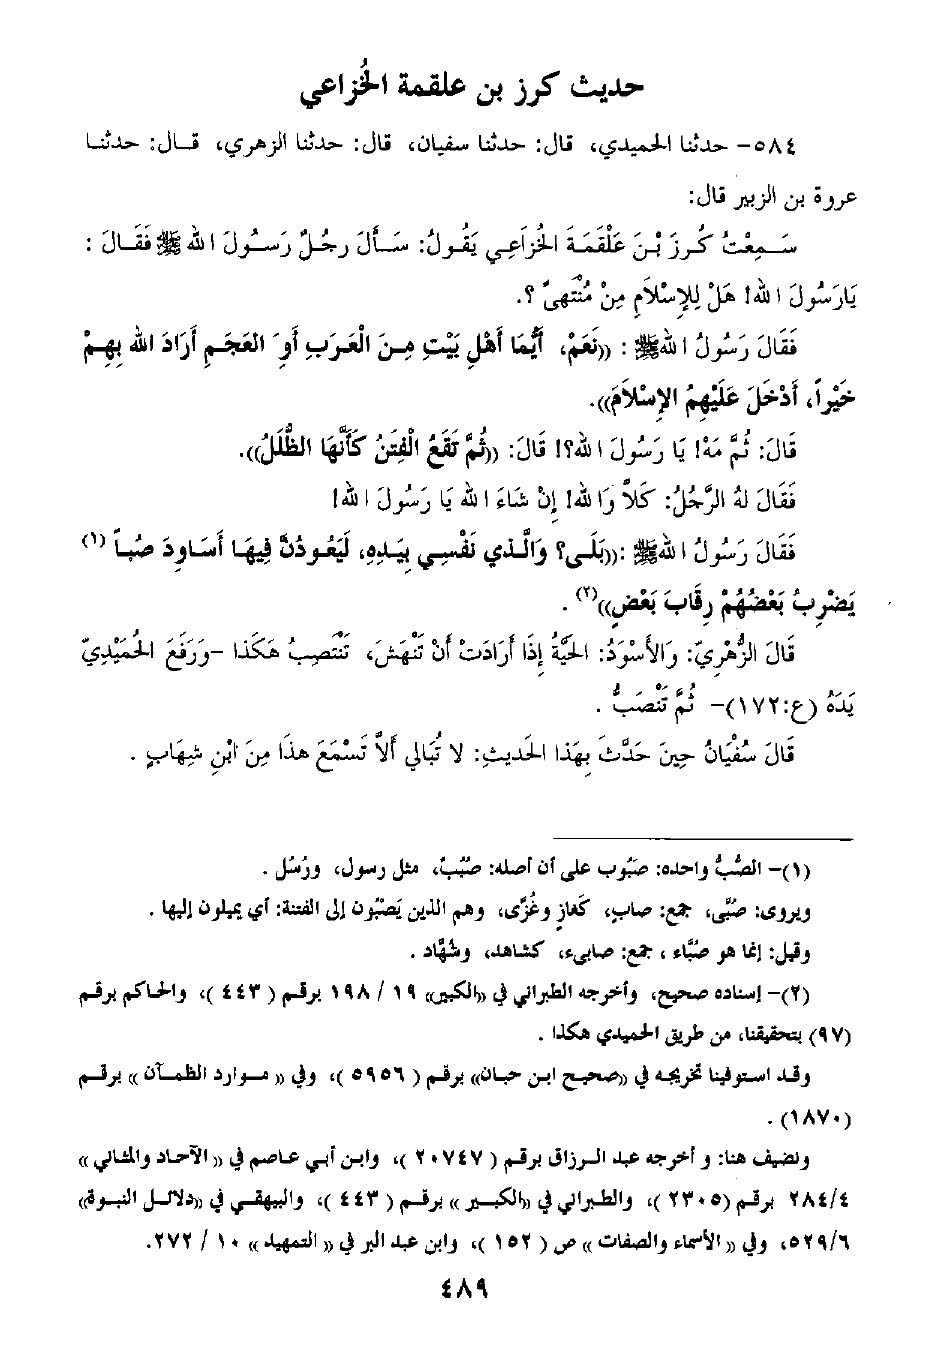 حديث كرز بن علقمة الخُزاعي
٥٨٤- حدثنا الحميدي، قال: حدثنا سفيان، قال: حدثنا الزهري، قال: حدثنا
عروة بن الزبير قال:
سَمِعْتُ كُرزَ بْنَ عَلْقَمَةَ الخُزاعِي يَقُولُ: سَأَلَ رجُلٌ رَسُولَ اللهﷺ فَقَالَ :
يَارَسُولَ الله! هَلْ لِلإِسْلَامِ مِنْ مُنْتَهىً ؟.
فَقَالَ رَسُولُ اللهﷺ : ((نَعَمْ، أَيُّمَا أَهْلِ بَيْتٍ مِنَ الْعَرَبِ أَوِ العَجَمِ أَرَادَ الله بِهِمْ
خَيْراً، أَدْخَلَ عَلَيْهِمُ الإِسْلَامَ)).
قَالَ: ثُمَّ مَهْ! يَا رَسُولَ الله؟! قَالَ: ((ثُمَّ تَقَعُ الْفِتَنُ كَأَنَّهَا الظُّلَلُ)).
فَقَالَ لهُ الرَّجُلُ: كَلاَّ وَالله! إِنْ شَاءَ الله يَا رَسُولَ الله!
فَقَالَ رَسُولُ اللهﷺ :((بَلَى؟ وَالَّذي نَفْسِي بِيَدِهِ، لَيَعُودُنَّ فِيهَا أَسَاوِدَ صُبّاً (١)
يَضْرِبُ بَعْضُهُمْ رِقَابَ بَعْضٍ))(٢) .
قَالَ الزُّهْرِيّ: وَالأَسْوَدُ: الحَيَّةُ إِذَا أَرَادَتْ أَنْ تَنْهَشَ، تَنْتَصِبُ هَكَذا -وَرَفَعَ الحُمَيْدِيّ
يَدَهُ (ع:١٧٢)- ثُمَّ تَنْصَبُّ .
قَالَ سُفْيَانُ حِينَ حَدَّثَ بِهَذا الحَديثِ: لا تُبَالي أَلاَّ تَسْمَعَ هذَا مِنَ ابْنِ شِهَابٍ .
(١)- الصُّبُّ واحده: صَبُوب على أن أصله: صُبُبٌ، مثل رسول، ورُسُل .
ويروى: صُبَّى، جمع: صابٍ، كَغازٍ وغُزَّى، وهم الذين يَصْبُون إلى الفتنة: أي يميلون إليها .
وقيل: إنما هو صُبَّاء ، جمع: صابىء، كشاهد، وشُهَّاد .
(٢)- إسناده صحيح، وأخرجه الطبراني في ((الكبير)) ١٩ / ١٩٨ برقم ( ٤٤٣ )، والحاكم برقم
(٩٧) بتحقيقنا، من طريق الحميدي هكذا .
وقد استوفينا تخريجه في ((صحيح ابن حبان)) برقم ( ٥٩٥٦ )، وفي (( موارد الظمآن )) برقم
(١٨٧٠) .
ونضيف هنا: و أخرجه عبد الرزاق برقم ( ٢٠٧٤٧ )، وابن أبي عاصم في (( الآحاد والمثاني ))
٢٨٤/٤ برقم (٢٣٠٥ )، والطبراني في ((الكبير )) برقم ( ٤٤٣ )، والبيهقي في ((دلائل النبوة))
٥٢٩/٦، وفي (( الأسماء والصفات )) ص ( ١٥٢ )، وابن عبد البر في (( التمهيد )) ١٠ / ٢٧٢.
٤٨٩